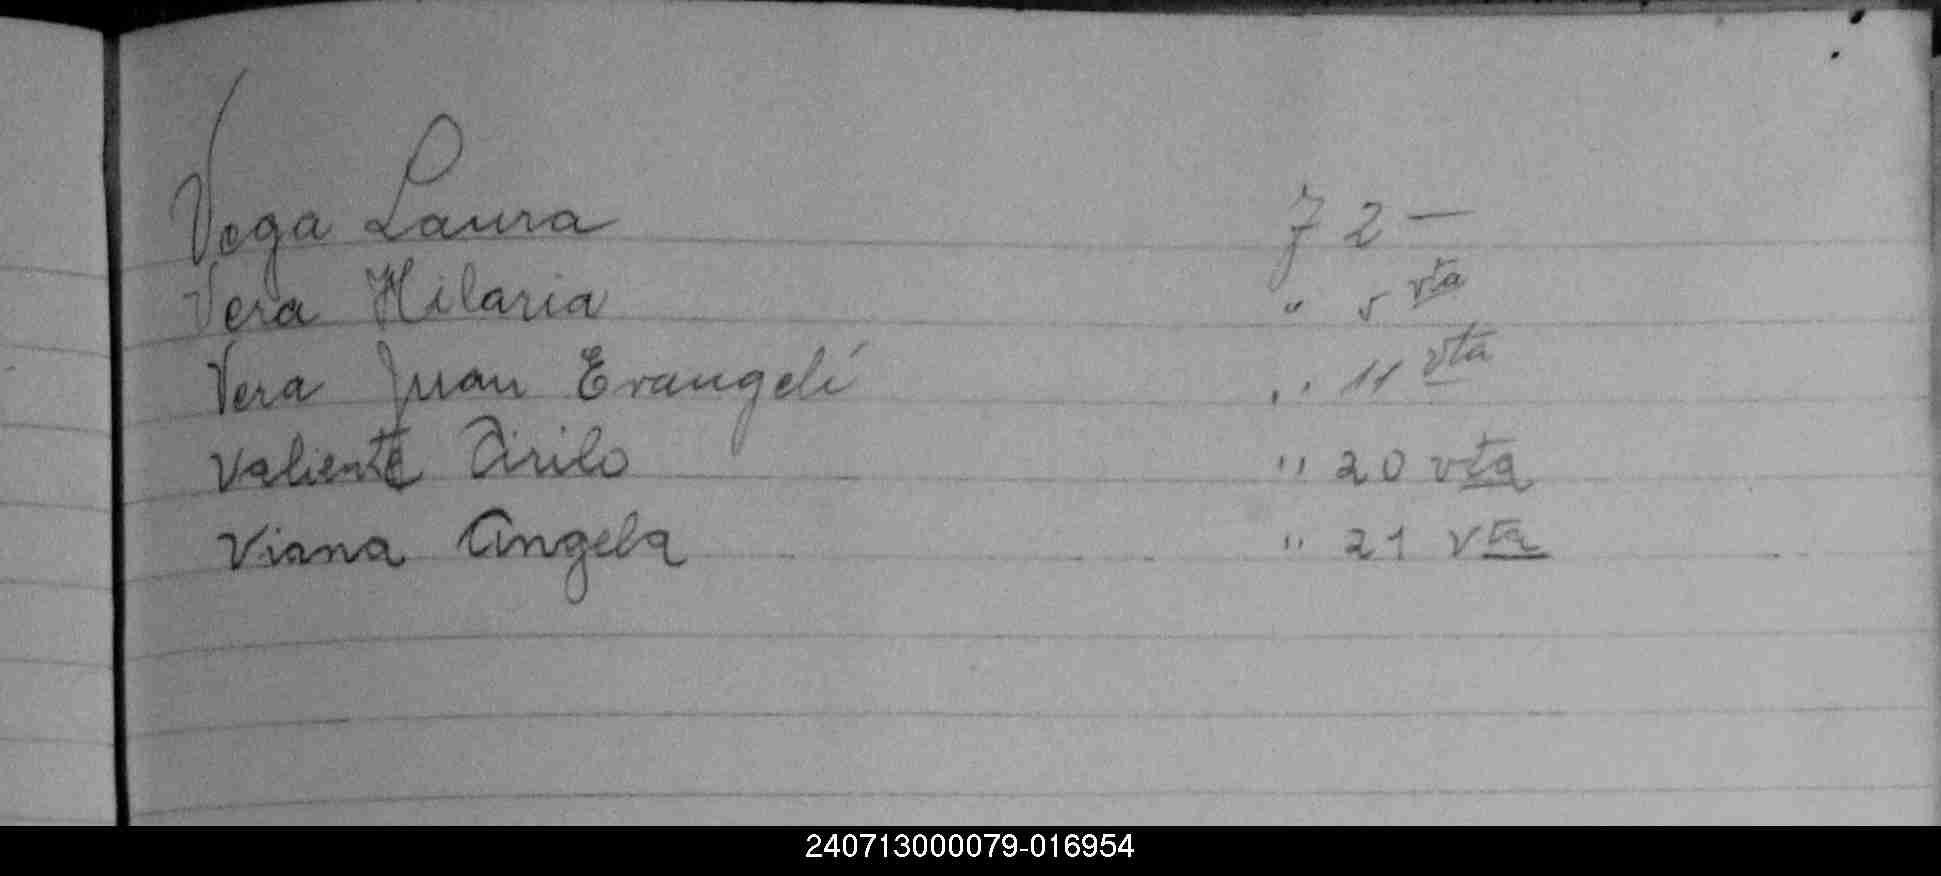 Vega Laura f 2 —
Vera Hilaria " 5 vta
Vera Juan Evangelí " 11 vta
Valiente Cirilo " 20 vta
Viana Angela " 21 vta
240713000079-016954